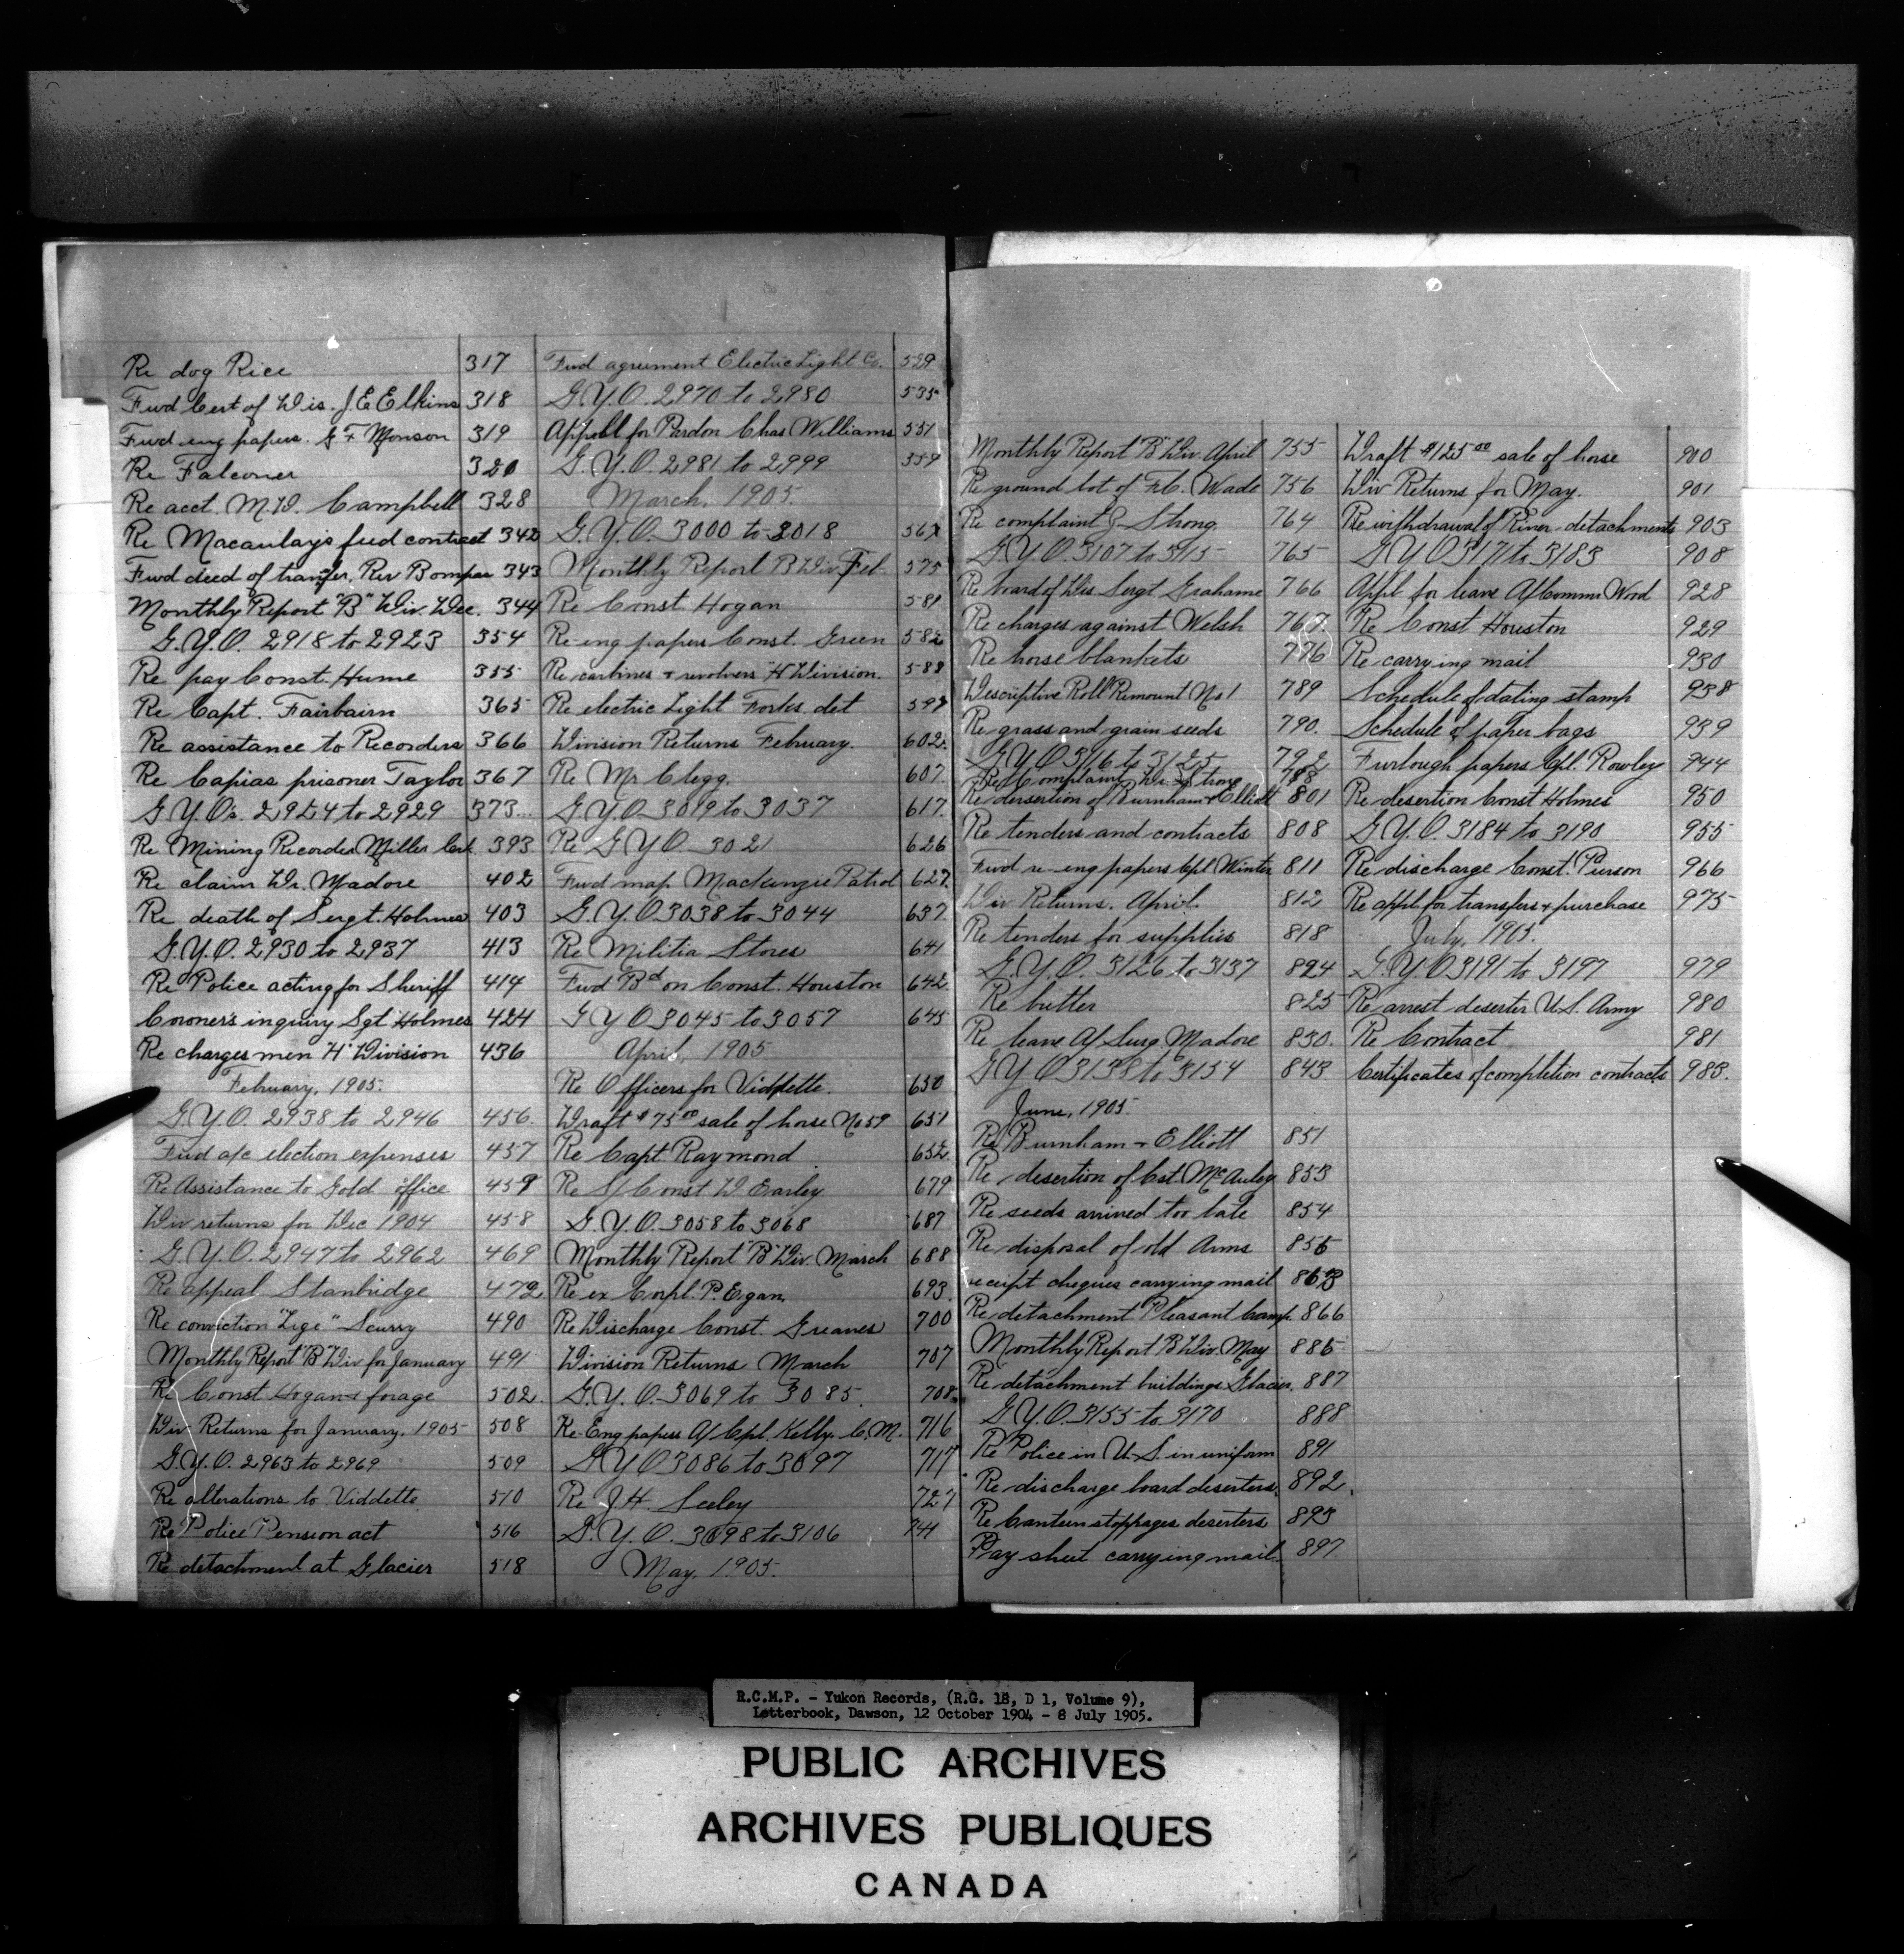 Re dog Rice 317
Fwd Cert of Dis. J.E Elkins 318
Fwd eng papers. G F Monson 319
Re Falconer 320
Re acct. M.D. Campbell 328
Re Macaulays feed contract 342
Fwd deed of tranfer, Rev Bompas 343
Monthly Report "B" Div. Dec. 344
G.Y.O. 2918 to 2923 354
Re pay Const. Hume 355
Re Capt. Fairbairn 365
Re assistance to Recorders 366
Re Capias prisoner Taylor 367
G.Y.Os. 2924 to 2929 373
Re Mining Recorder Miller Crk. 393
Re claim Dr. Madore 402
Re death of Sergt. Holmes 403
G.Y.O. 2930 to 2937 413
Re Police acting for Sheriff 414
Coroner's inquiry Sgt Holmes 424
Re charges men "H" Division 436
February, 1905.
G.Y.O. 2938 to 2946 456
Fwd a/c election expenses 457
Re Assistance to Gold office 459
Div returns for Dec 1904 458
G.Y.O. 2947 to 2962 469
Re appeal Stanbridge 472
Re conviction "Lige" Scurry 490
Monthly Report "B" Div for January 491
Re Const Hogan + forage 502
Div Returns for January, 1905 508
G.Y.O. 2963 to 2969 509
Re alterations to Viddette 510
Re Police Pension act 516
Re detachment at Glacier 518
Fwd agreement Electric Light Co. 529
G.Y.O. 2970 to 2980 535
Appeal for Pardon Chas Williams 551
G.Y.O. 2981 to 2999 559
March, 1905.
G.Y.O. 3000 to 3018 567
Monthly Report B Div. Feb. 575
Re Const. Hogan 581
Re-eng papers Const. Green 582
Re carbines + revolvers "H" Division. 588
Re electric Light Forks det 597
Division Returns February. 602
Re Mr Clegg. 607
G.Y.O 3019 to 3037 617
Re G.Y.O 3021 626
Fwd map Mackenzie Patrol 627
G.Y.O. 3038 to 3044 637
Re Militia Stores 641
Fwd Bd on Const. Houston 642
G Y O 3045 to 3057 645
April, 1905
Re Officers for Viddette. 650
Draft $75.00 sale of horse No 59 651
Re Capt. Raymond 652
Re S/Const W Earley 679
G.Y.O. 3058 to 3068 687
Monthly Report "B" Div. March 688
Re ex Corpl. P. Egan. 693
Re Discharge Const. Greaves 700
Division Returns March 707
G.Y.O. 3069 to 3085 708
Re-Eng papers A/Cpl. Kelly. C.M. 716
G.Y.O 3086 to 3097 717
Re J.H. Seeley 727
G.Y.O. 3098 to 3106 741
May, 1905.
Monthly Report "B" Div. April 755
Re ground lot of F.C. Wade 756
Re complaint G Strong. 764
G.Y.O. 3107 to 3115 765
Re board of Dis Sergt Grahame 766
Re charges against Welsh 767
Re horse blankets 776
Descriptive Roll Remount No 1 789
Re grass and grain seeds 790.
G.Y.O 3116 to 3125 792
Re Complaint Dr. Strong 788
Re desertion of Burnham + Elliott 801
Re tenders and contracts 808
Fwd re-eng papers Cpl Winter 811
Div Returns. April. 812
Re tenders for supplies 818
G.Y.O. 3126 to 3137 824
Re butter 825
Re leave A/ Surg. Madore 830.
G Y O 3138 to 3154 843
June, 1905.
Re Burnham + Elliott 851
Re desertion of Cst. McAuley 853
Re seeds arrived too late 854
Re disposal of old Arms 855
receipt cheques carrying mail 863
Re detachment Pleasant Camp. 866
Monthly Report B Div May 885
Re detachment buildings Glacier. 887
G.Y.O. 3155 to 3170 888
Re Police in U.S. in uniform 891
Re discharge board deserters. 892
Re Canteen stoppages deserters 893
Pay sheet carrying mail. 897
Draft $125.00 sale of horse 900
Div Returns for May. 901
Re withdrawal of River detachments 903
G Y O 3171 to 3183 908
Appl. for leave A/Commr Wood 928
Re Const Houston 929
Re carrying mail 930
Schedule of dating stamp 938
Schedule of paper bags 939
Furlough papers Cpl. Rowley 944
Re desertion Const Holmes 950
G.Y.O. 3184 to 3190 955
Re discharge Const. Pierson 966
Re appl. for transfer + purchase 975
July, 1905.
G.Y.O 3191 to 3197 979
Re arrest deserter U.S. Army 980
Re Contract 981
Certificates of completion contracts 983.
R.C.M.P. - Yukon Records, (R.G. 18, D 1, Volume 9),
Letterbook, Dawson, 12 October 1904 - 8 July 1905.
PUBLIC ARCHIVES
ARCHIVES PUBLIQUES
CANADA